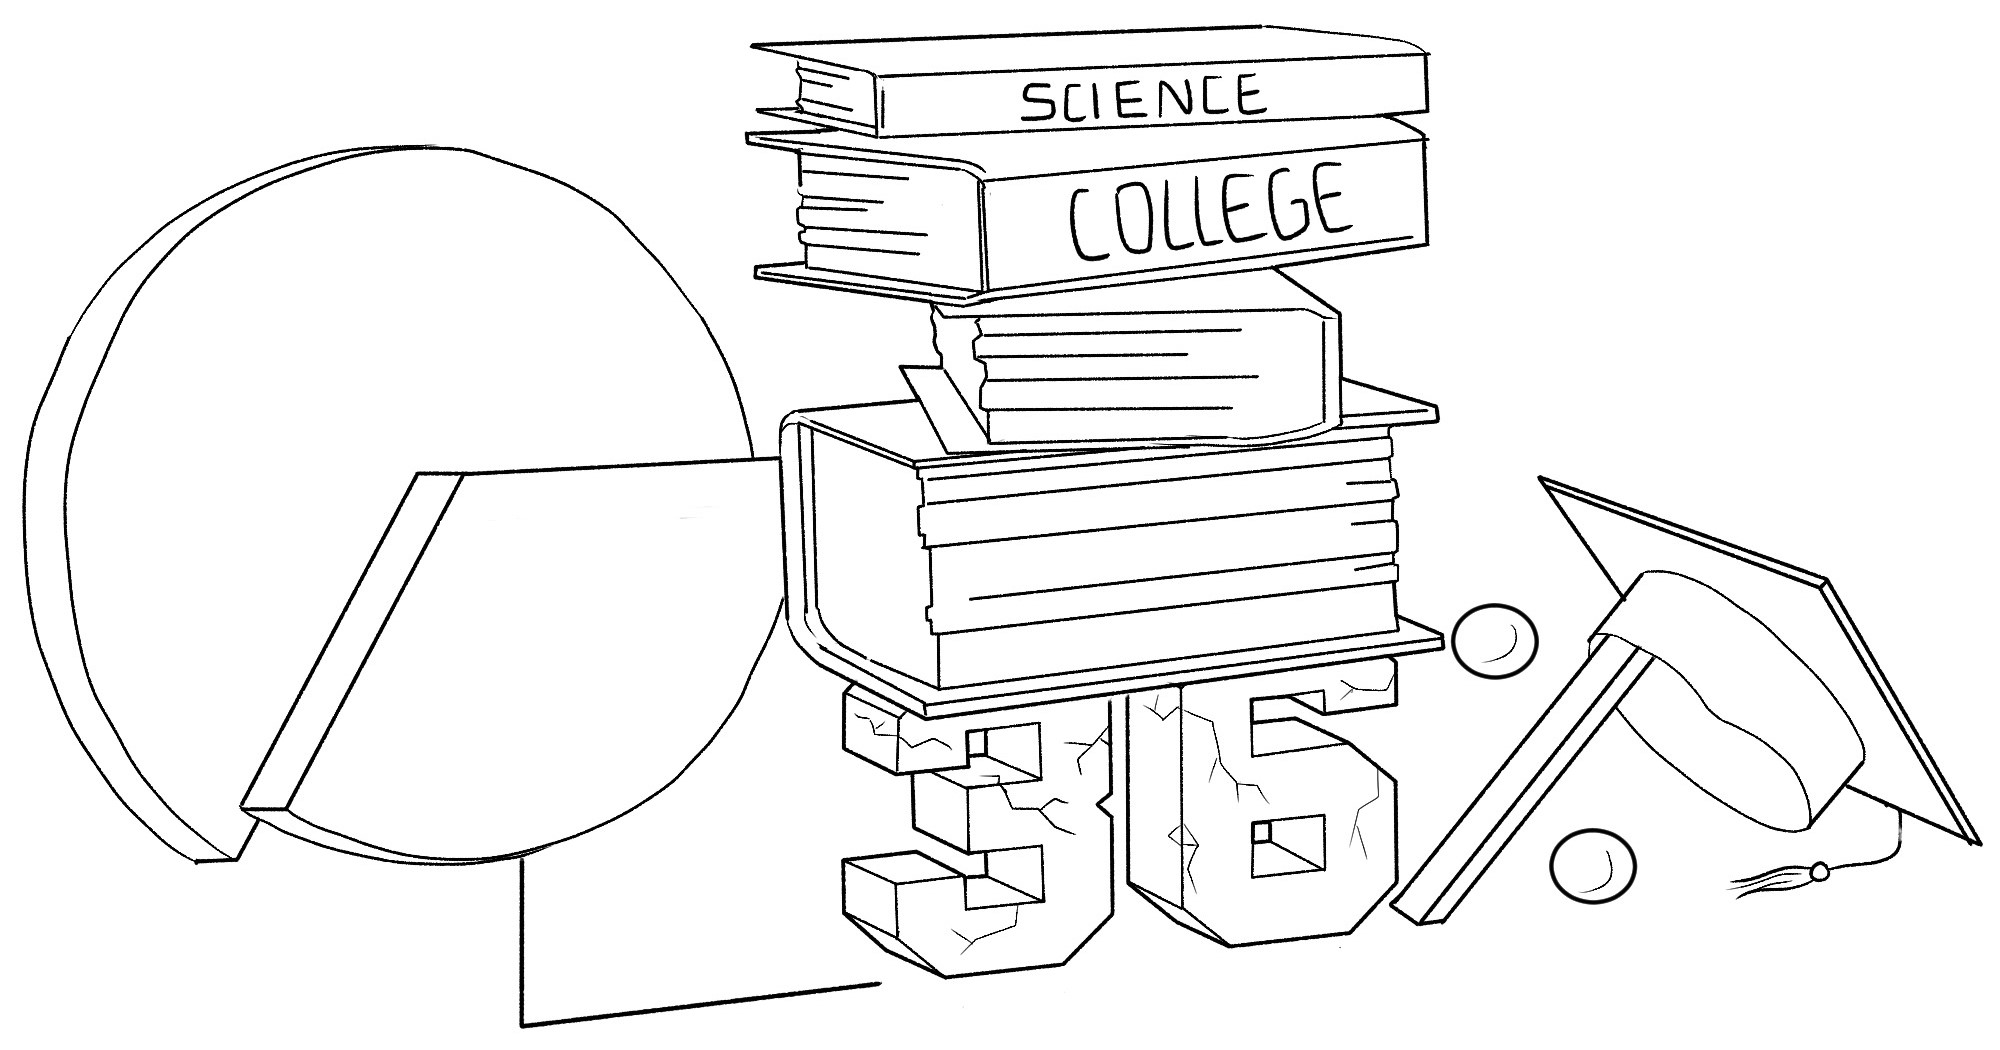 SCIENCE
COLLEGE
36